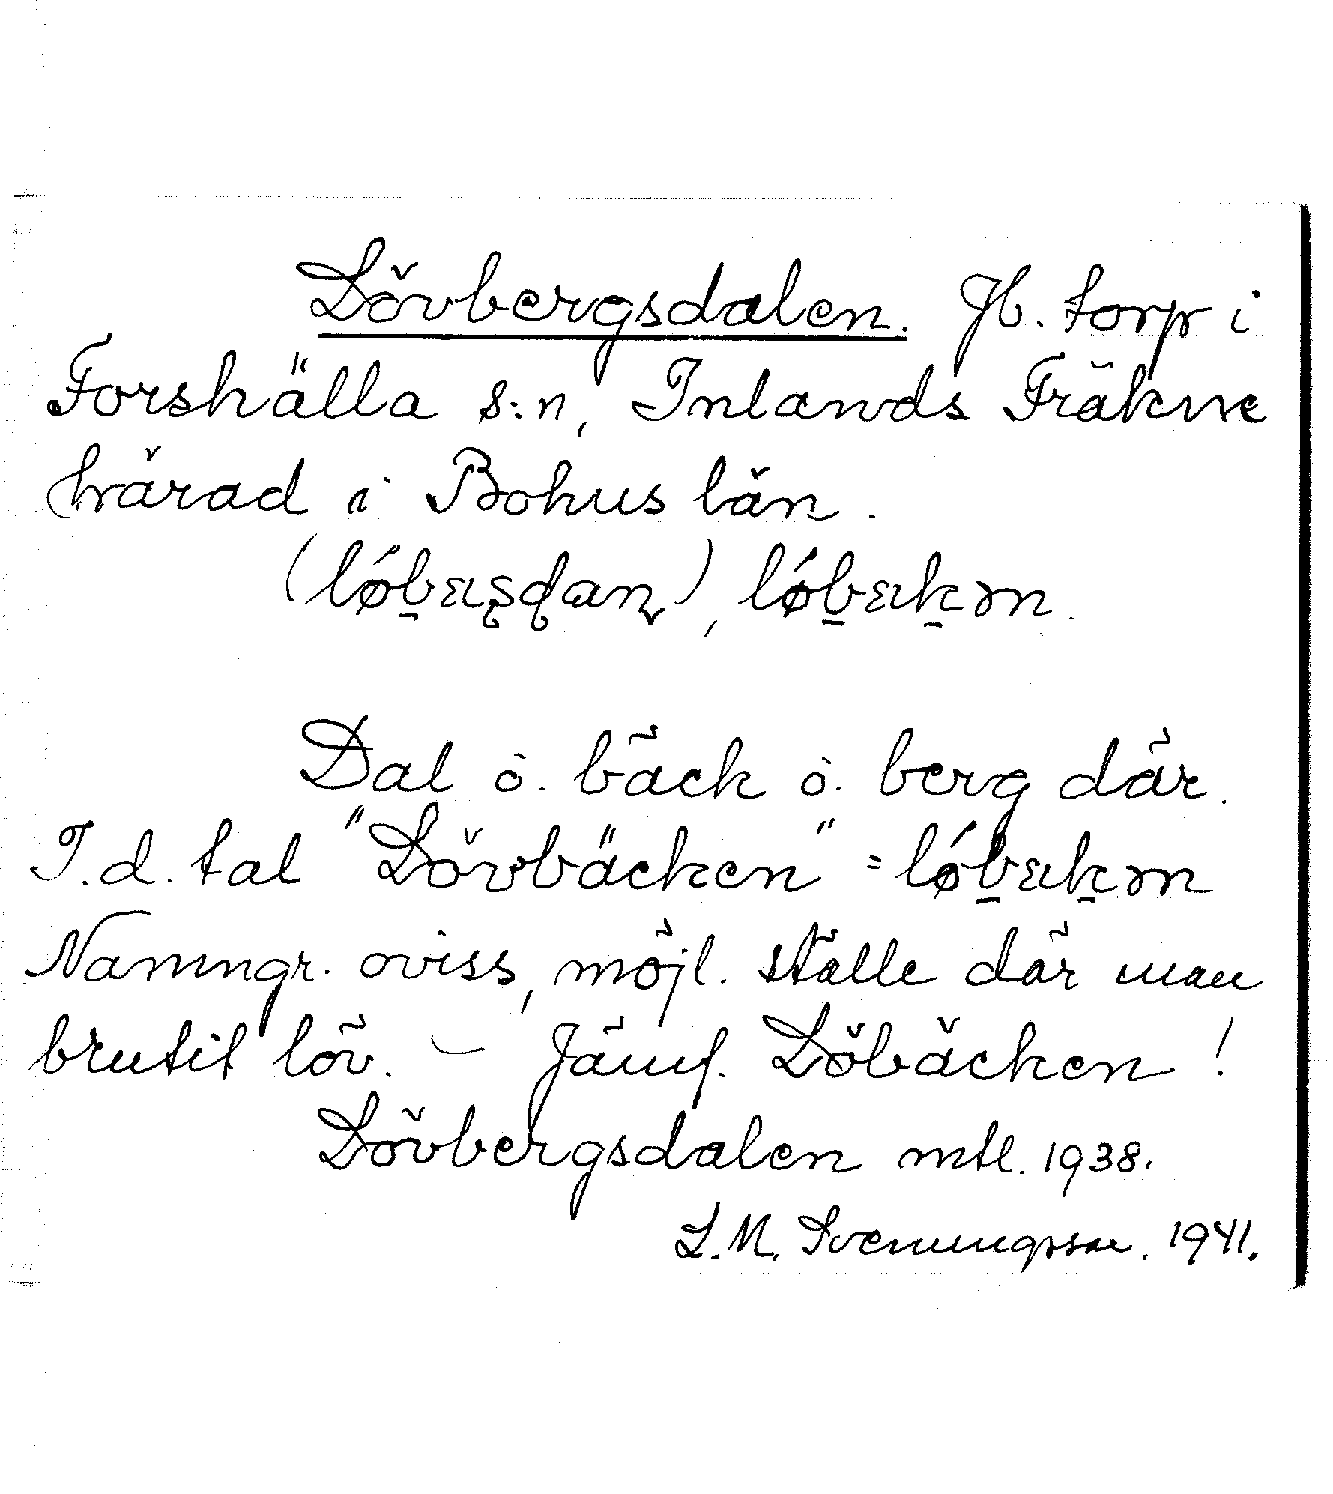 Lövbergsdalen. Jb. torp i
Forshälla s:n, Inlands Fräkne
härad i Bohus län.
Dal o. bäck o. berg där.
I.d. tal "Lövbäcken" =
Namngr. oviss, möjl. ställe där man
brutit löv. – Jämf. Löbäcken!
Lövbergsdalen mtl. 1938.
L.M. Svenungsson. 1941.